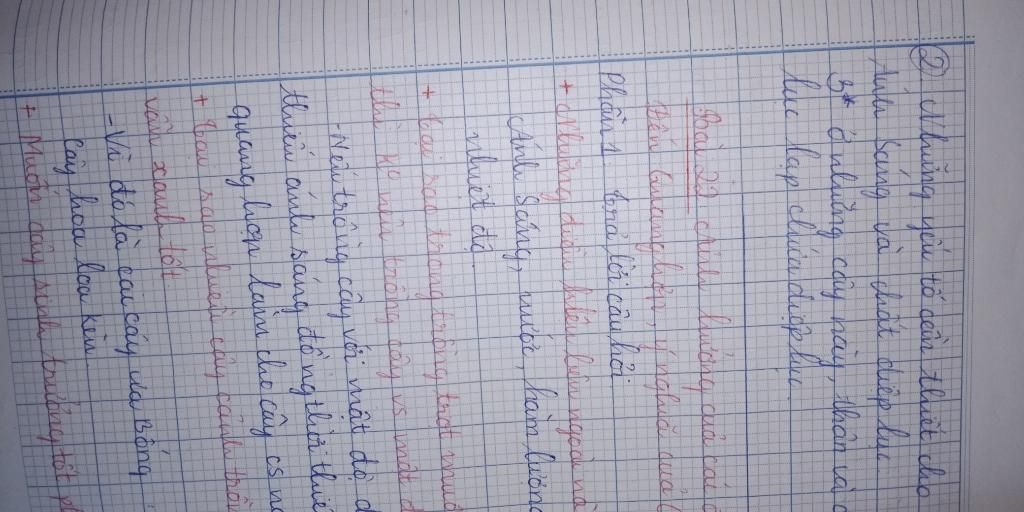 ② Những yếu tố cần thiết cho
Ánh sáng và chất diệp lục.
3* Ở những cây này, thân và c
lục lạp chứa diệp lục
Bài 22 Ảnh hưởng của các
đến quang hợp, ý nghĩa của
Phần 1 trả lời câu hỏi
+ Những điều kiện bên ngoài nà
(Ánh sáng, nước, hàm lượng
nhiệt độ
+ tại sao trong trồng trọt muố
thì ko nên trồng cây vs mật đ
-Nếu trồng cây với mật độ d
thiếu ánh sáng đồng thời thiế
quang hợp làm cho cây
+ tại sao nhiều cây cảnh trồ
vẫn xanh tốt
-Vì đó là cái cây ưa Bóng
Cây hoa loa kèn
+ Muốn cây sinh trưởng tốt p